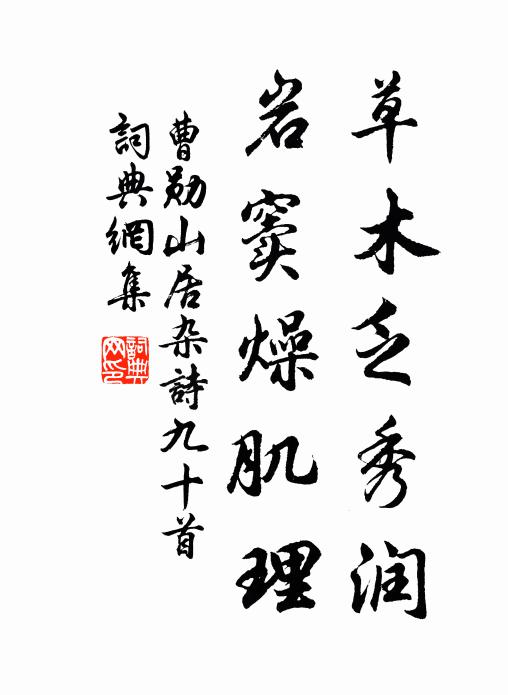 草木乏秀润
岩窦燥肌理
曹勋山居杂詩九十首
詞典網集
詞典
网印